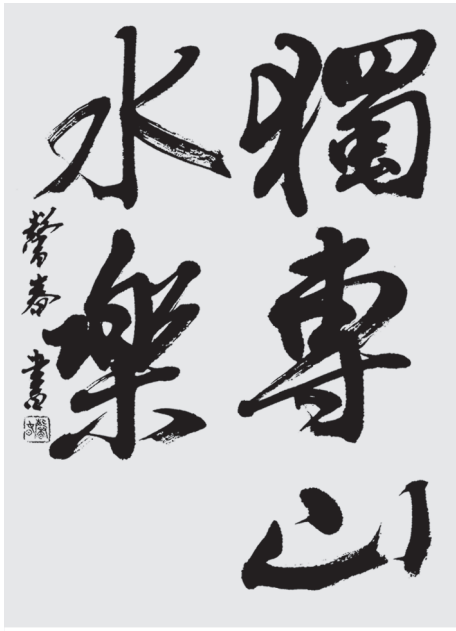 獨專山
水樂
馨春 書